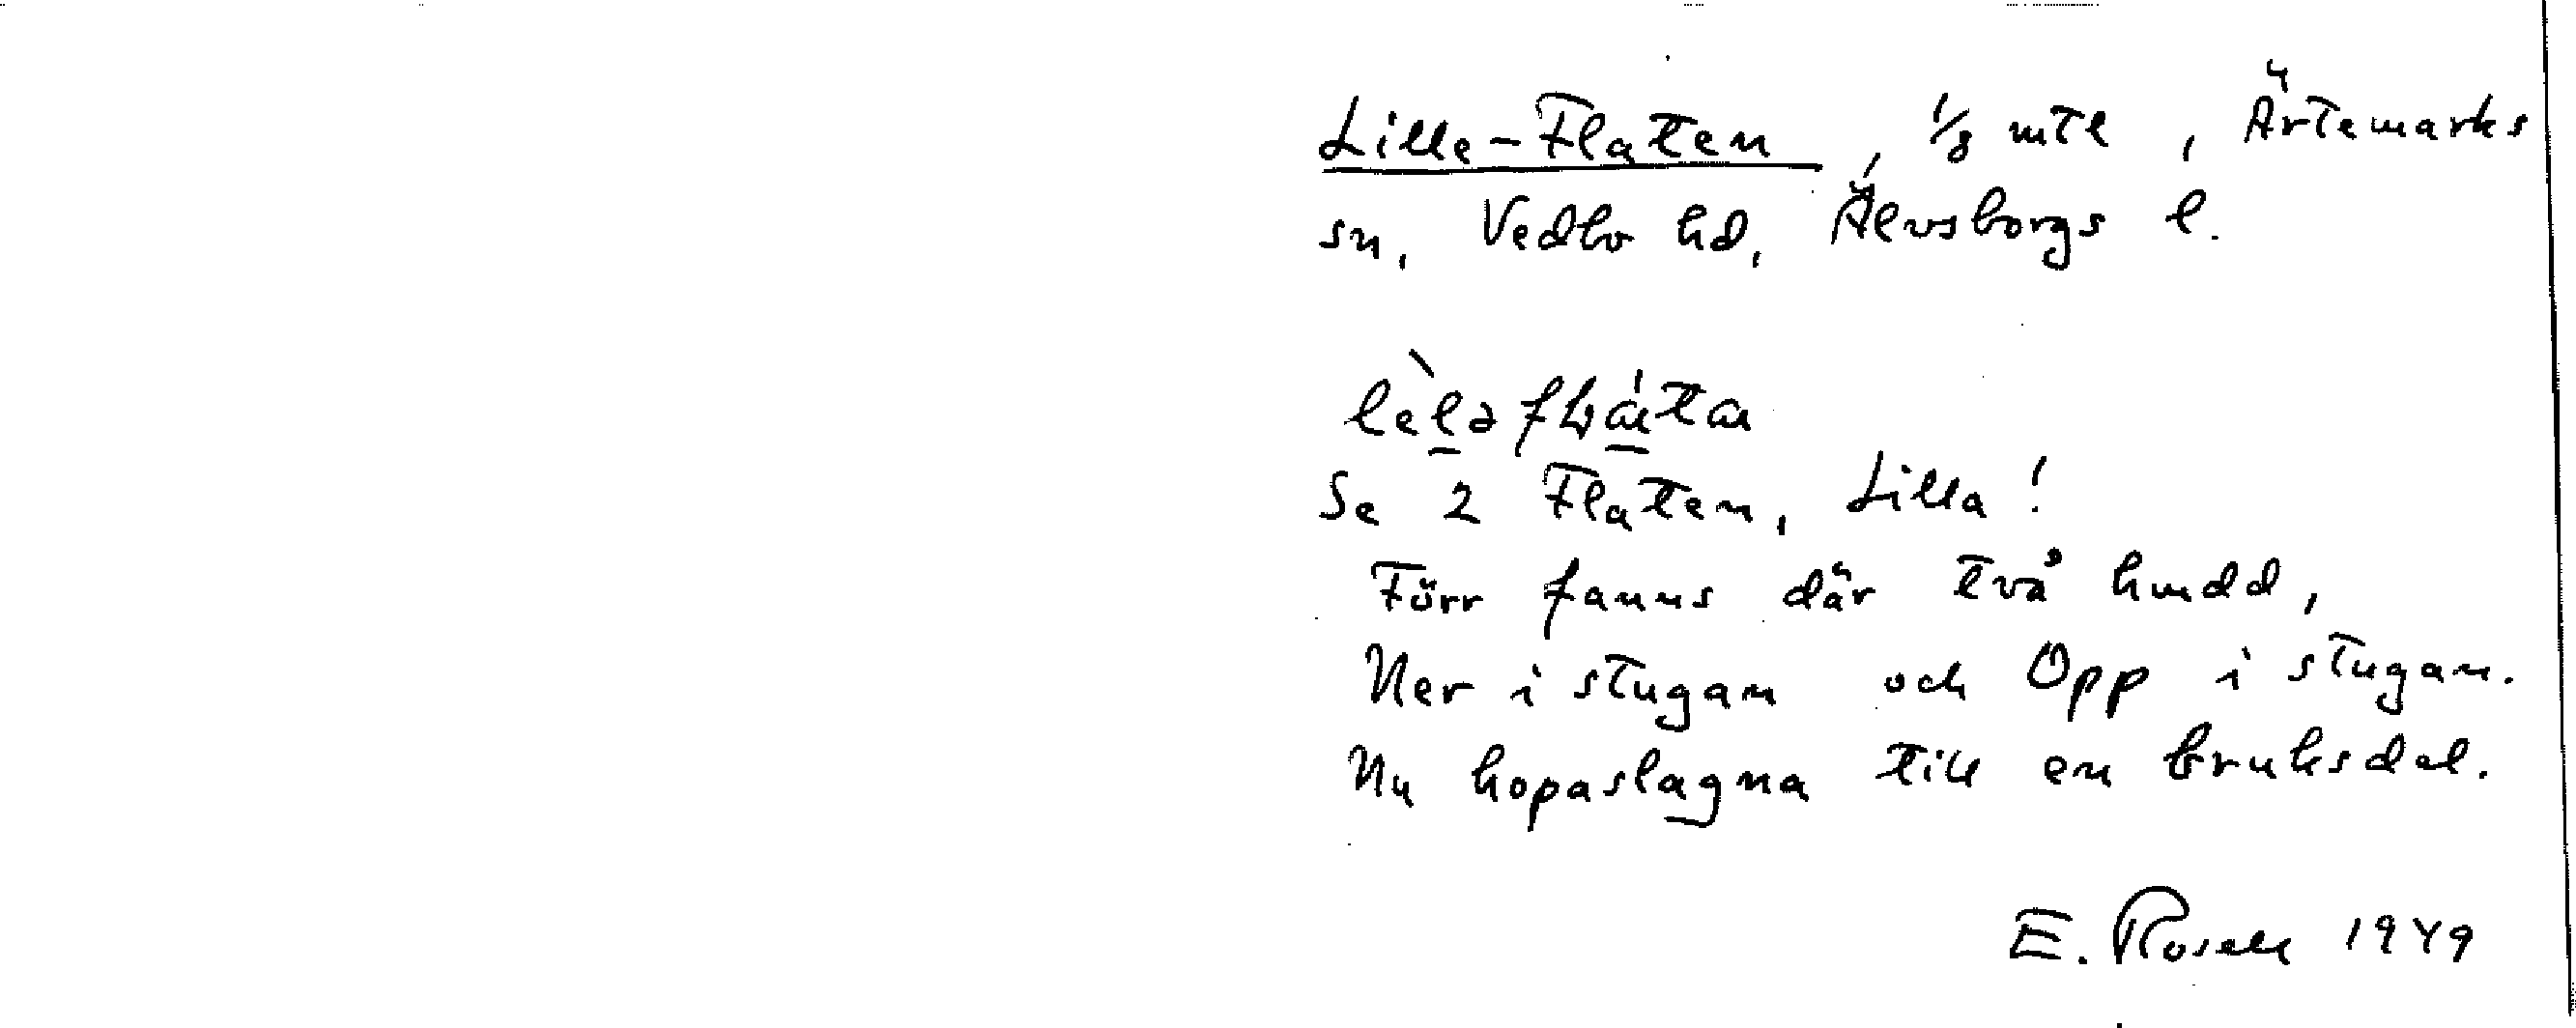 Lille-Flaten, 1/8 mtl, Ärtemarks
sn, Vedbo hd, Älvsborgs l.
Se 2 Flaten, Lilla!
Förr fanns där två hmdd,
Ner i stugan och Opp i stugan.
Nu hopaslagna till en bruksdel.
E. Rosell 1949